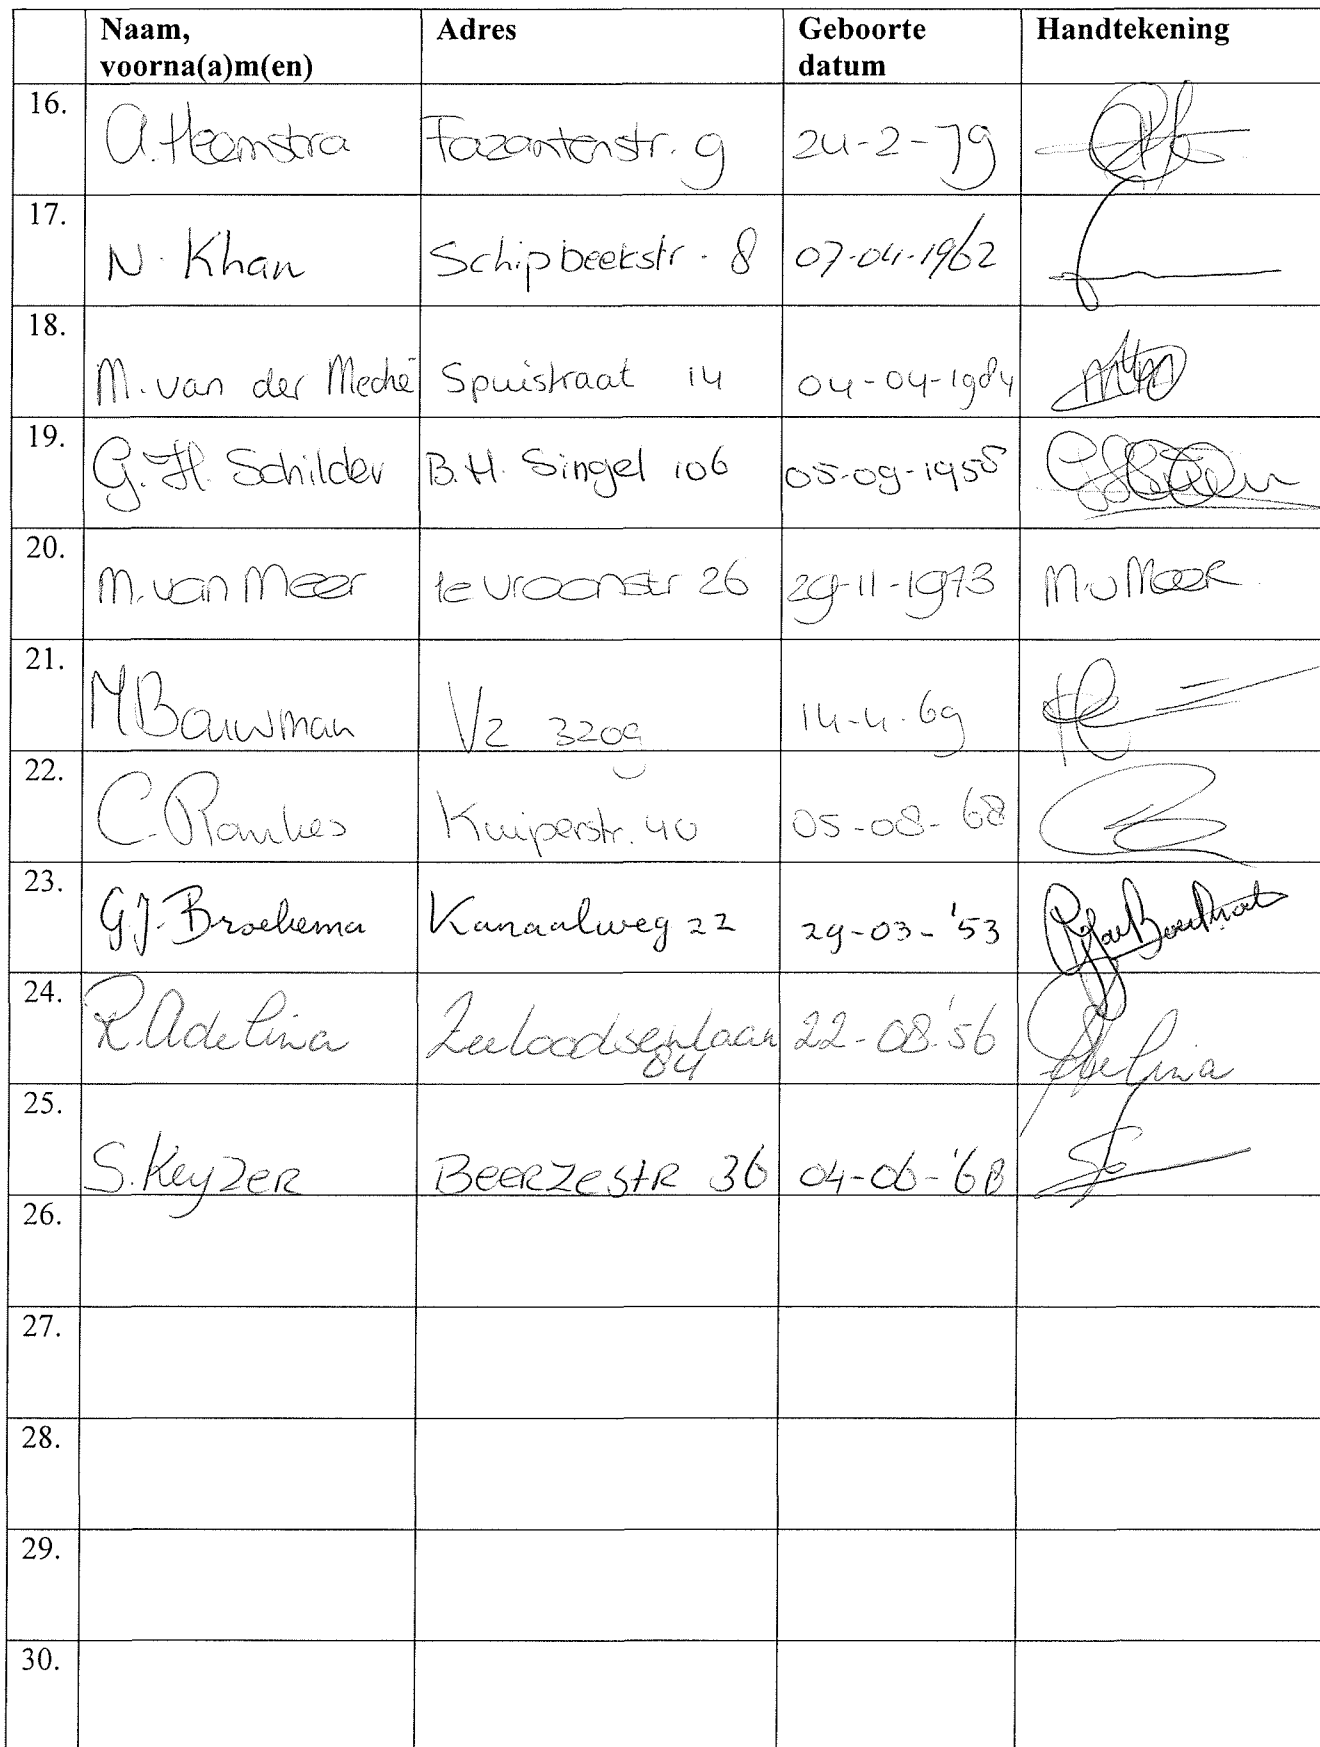 Naam, voorna(a)m(en) Adres Geboorte datum Handtekening
16. A. Heemstra Fazantenstr. 9 24-2-79
17. N. Khan Schipbeekstr. 8 07-04-1962
18. M. van der Meché Spuistraat 14 04-04-1984
19. G.H. Schilder B.H. Singel 106 05-09-1955
20. M. van Meer te vroonstr 26 29-11-1973 M.v Meer
21. M Bouwman Vz 3209 14-4-69
22. C. Kuiperstr. 40 05-08-68
23. G.J. Broekema Kanaalweg 22 29-03-'53
24. R. Adelina Zeeloodsenlaan 84 22-08-'56 Adelina
25. S. Keyzer Beerzestr 36 04-06-'68
26.
27.
28.
29.
30.